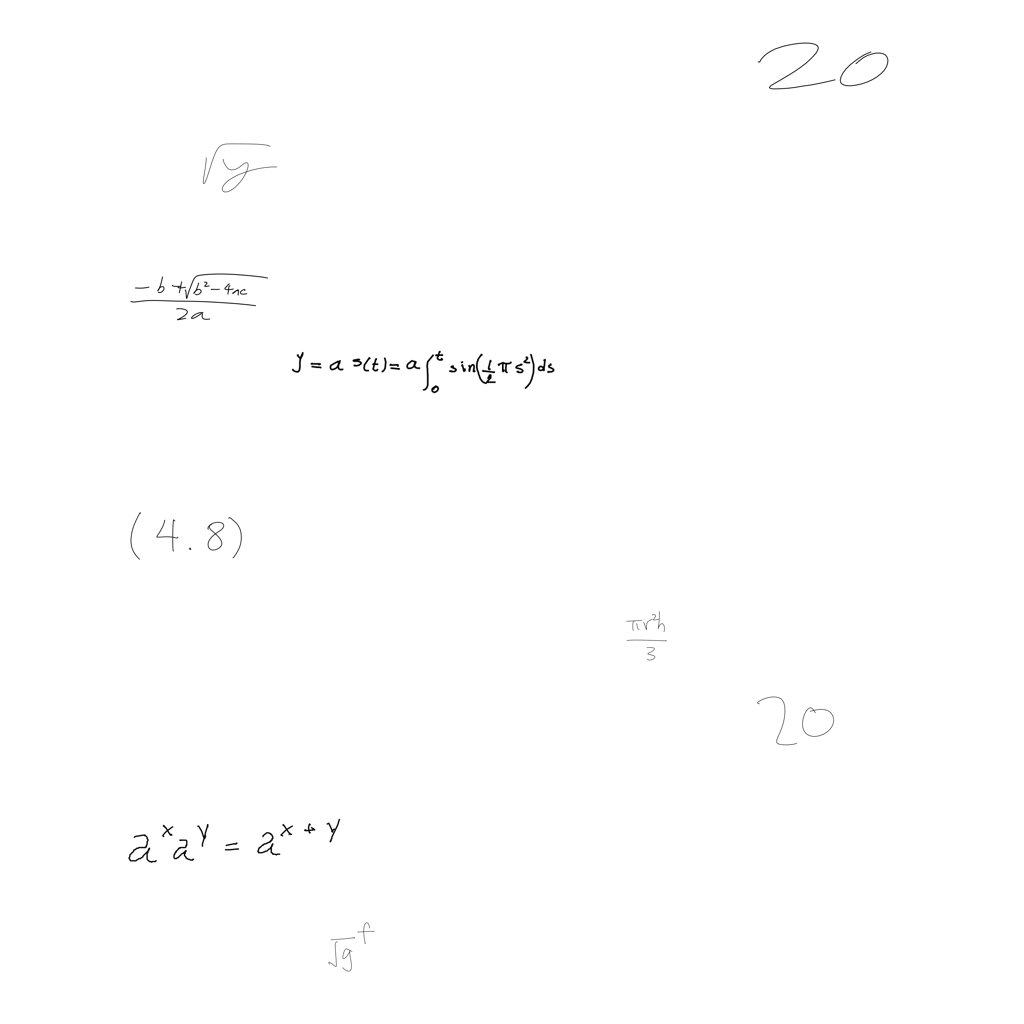 20
√y
(-b+√(b²-4ac))/(2a)
y = a s(t) = a ∫₀ᵗ sin(½πs²)ds
(4.8)
πr²h/3
20
aˣaʸ = aˣ⁺ʸ
√g^f